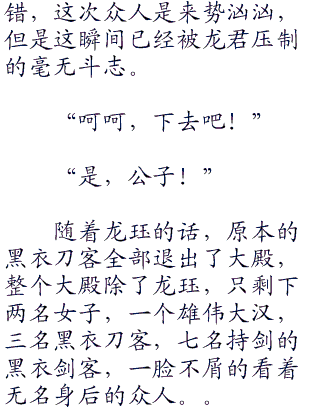 错，这次众人是来势汹汹，
但是这瞬间已经被龙君压制
的毫无斗志。
“呵呵，下去吧！”
“是，公子！”
随着龙珏的话，原本的
黑衣刀客全部退出了大殿，
整个大殿除了龙珏，只剩下
两名女子，一个雄伟大汉，
三名黑衣刀客，七名持剑的
黑衣剑客，一脸不屑的看着
无名身后的众人。。